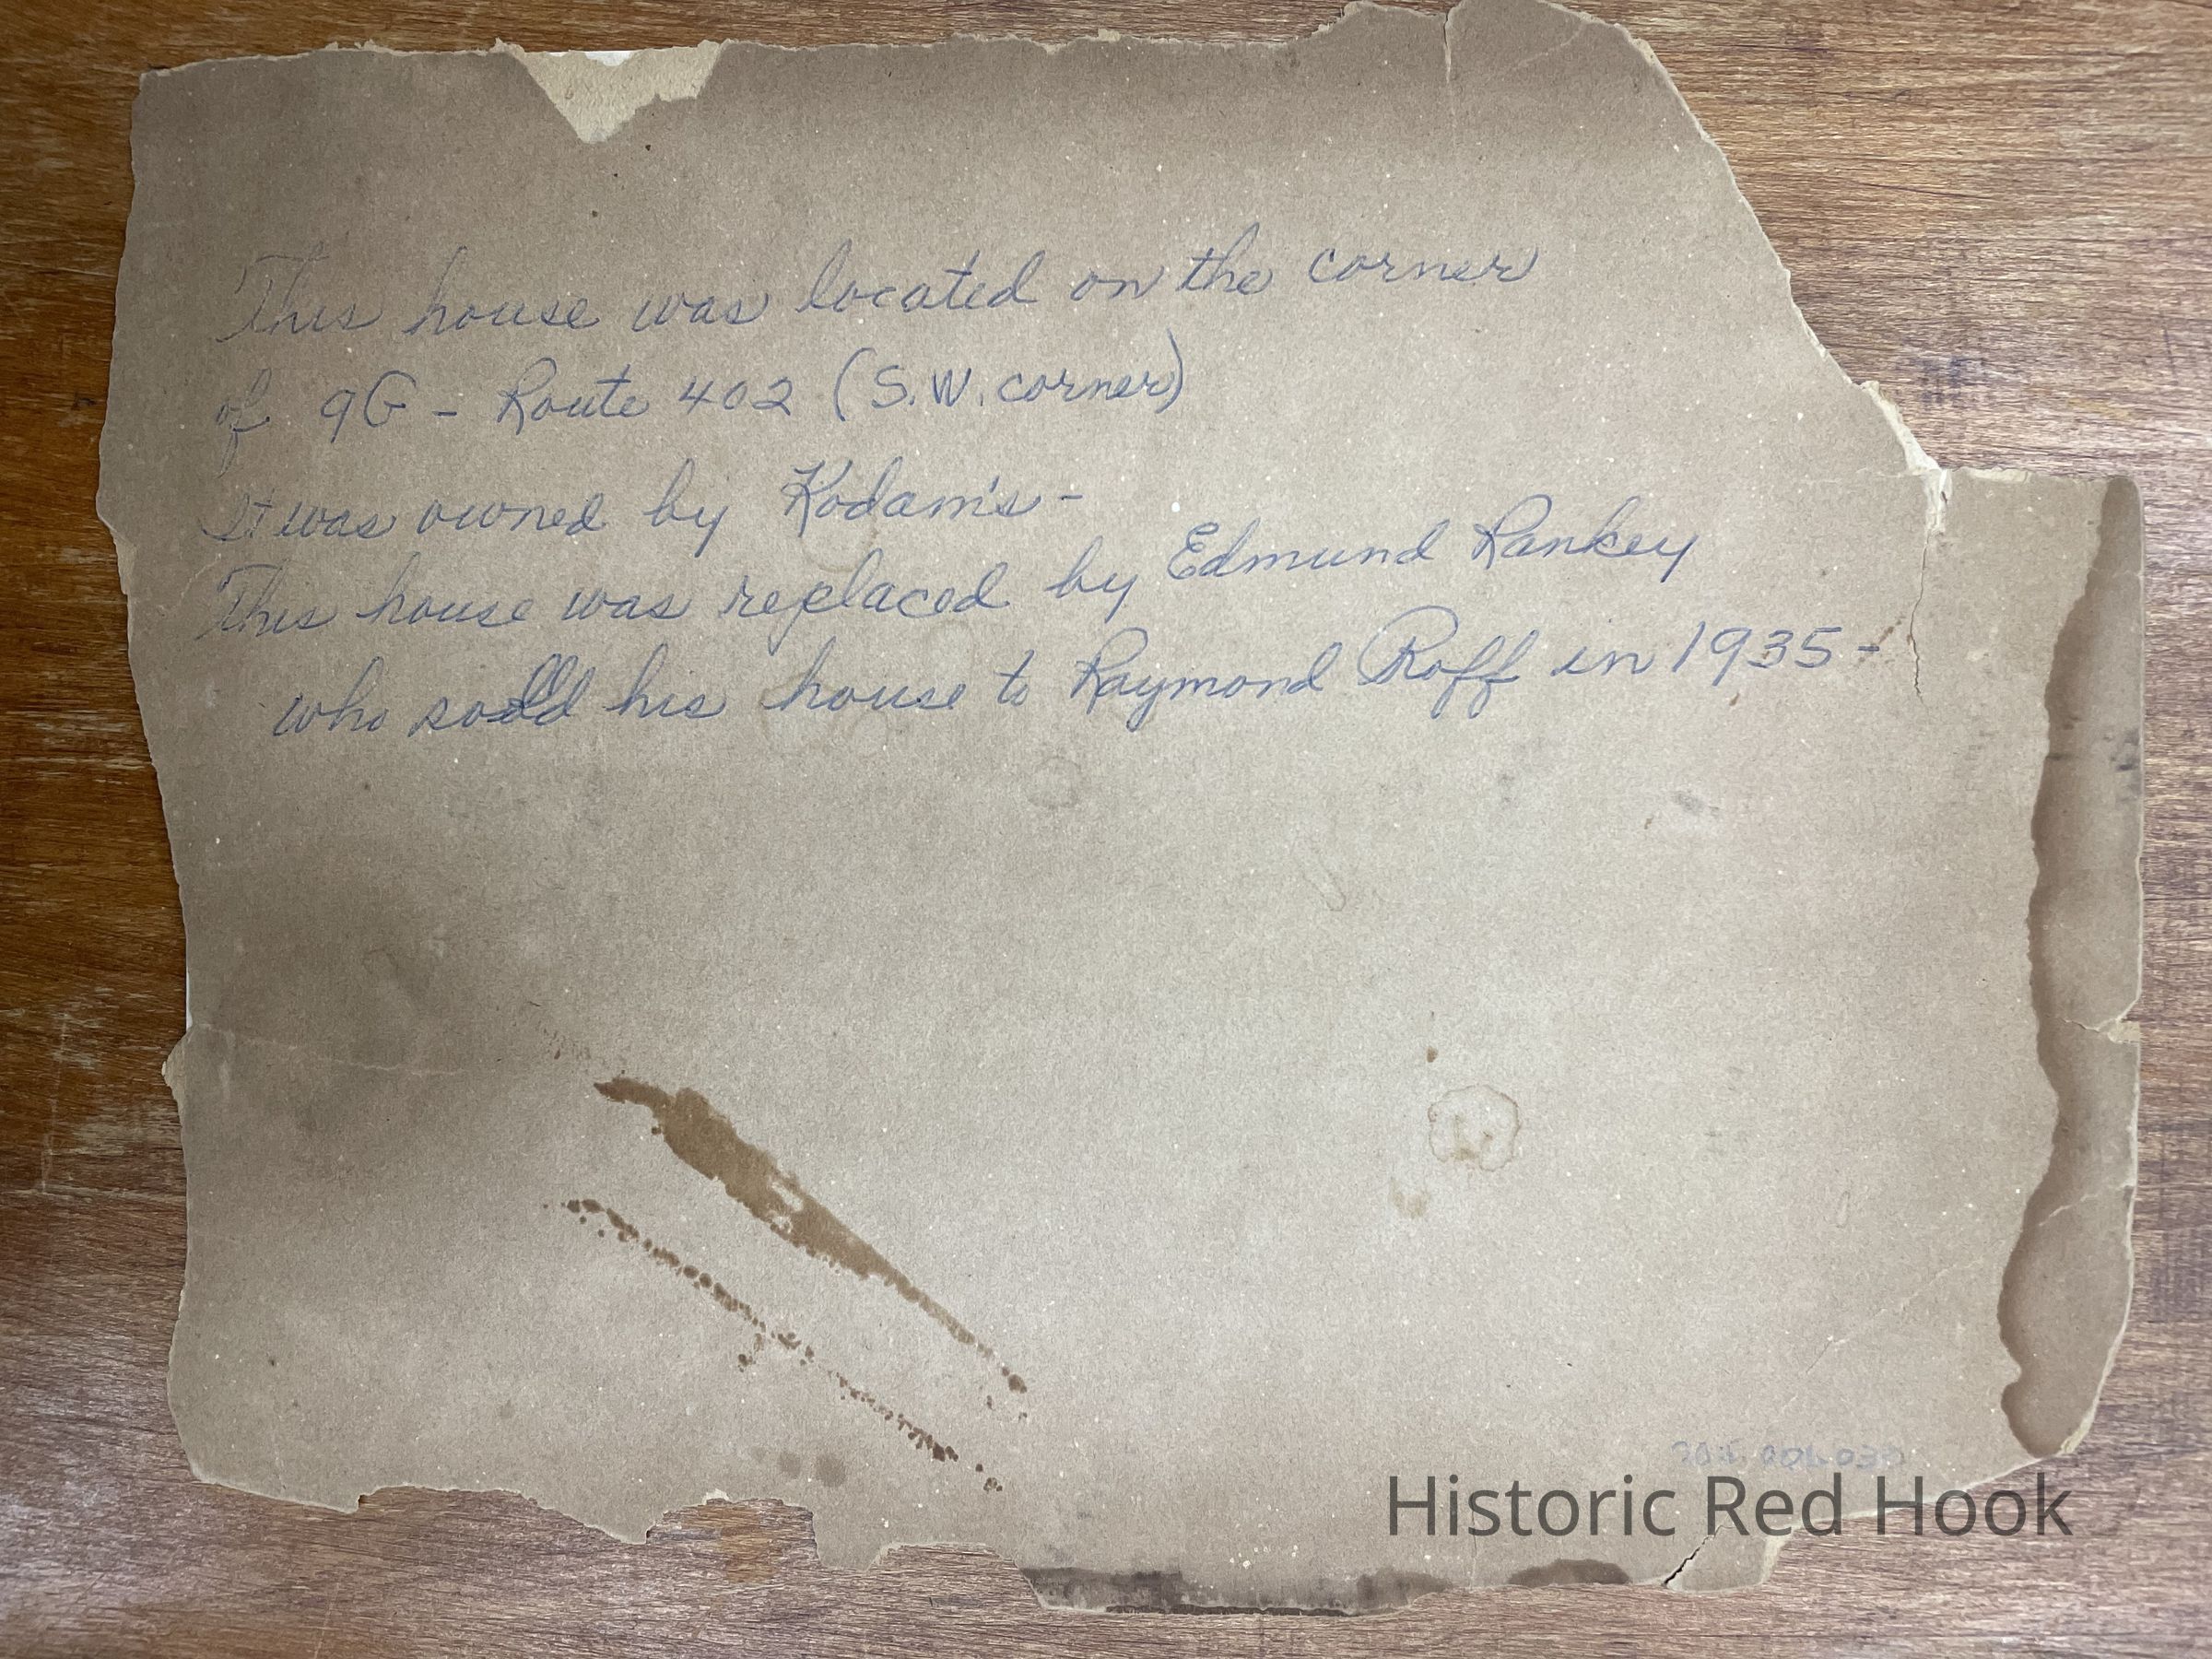 This house was located on the corner
of 9G - Route 402 (S.W. corner)
It was owned by Kodam's -
This house was replaced by Edmund Rankey
who sold his house to Raymond Roff in 1935 -
Historic Red Hook